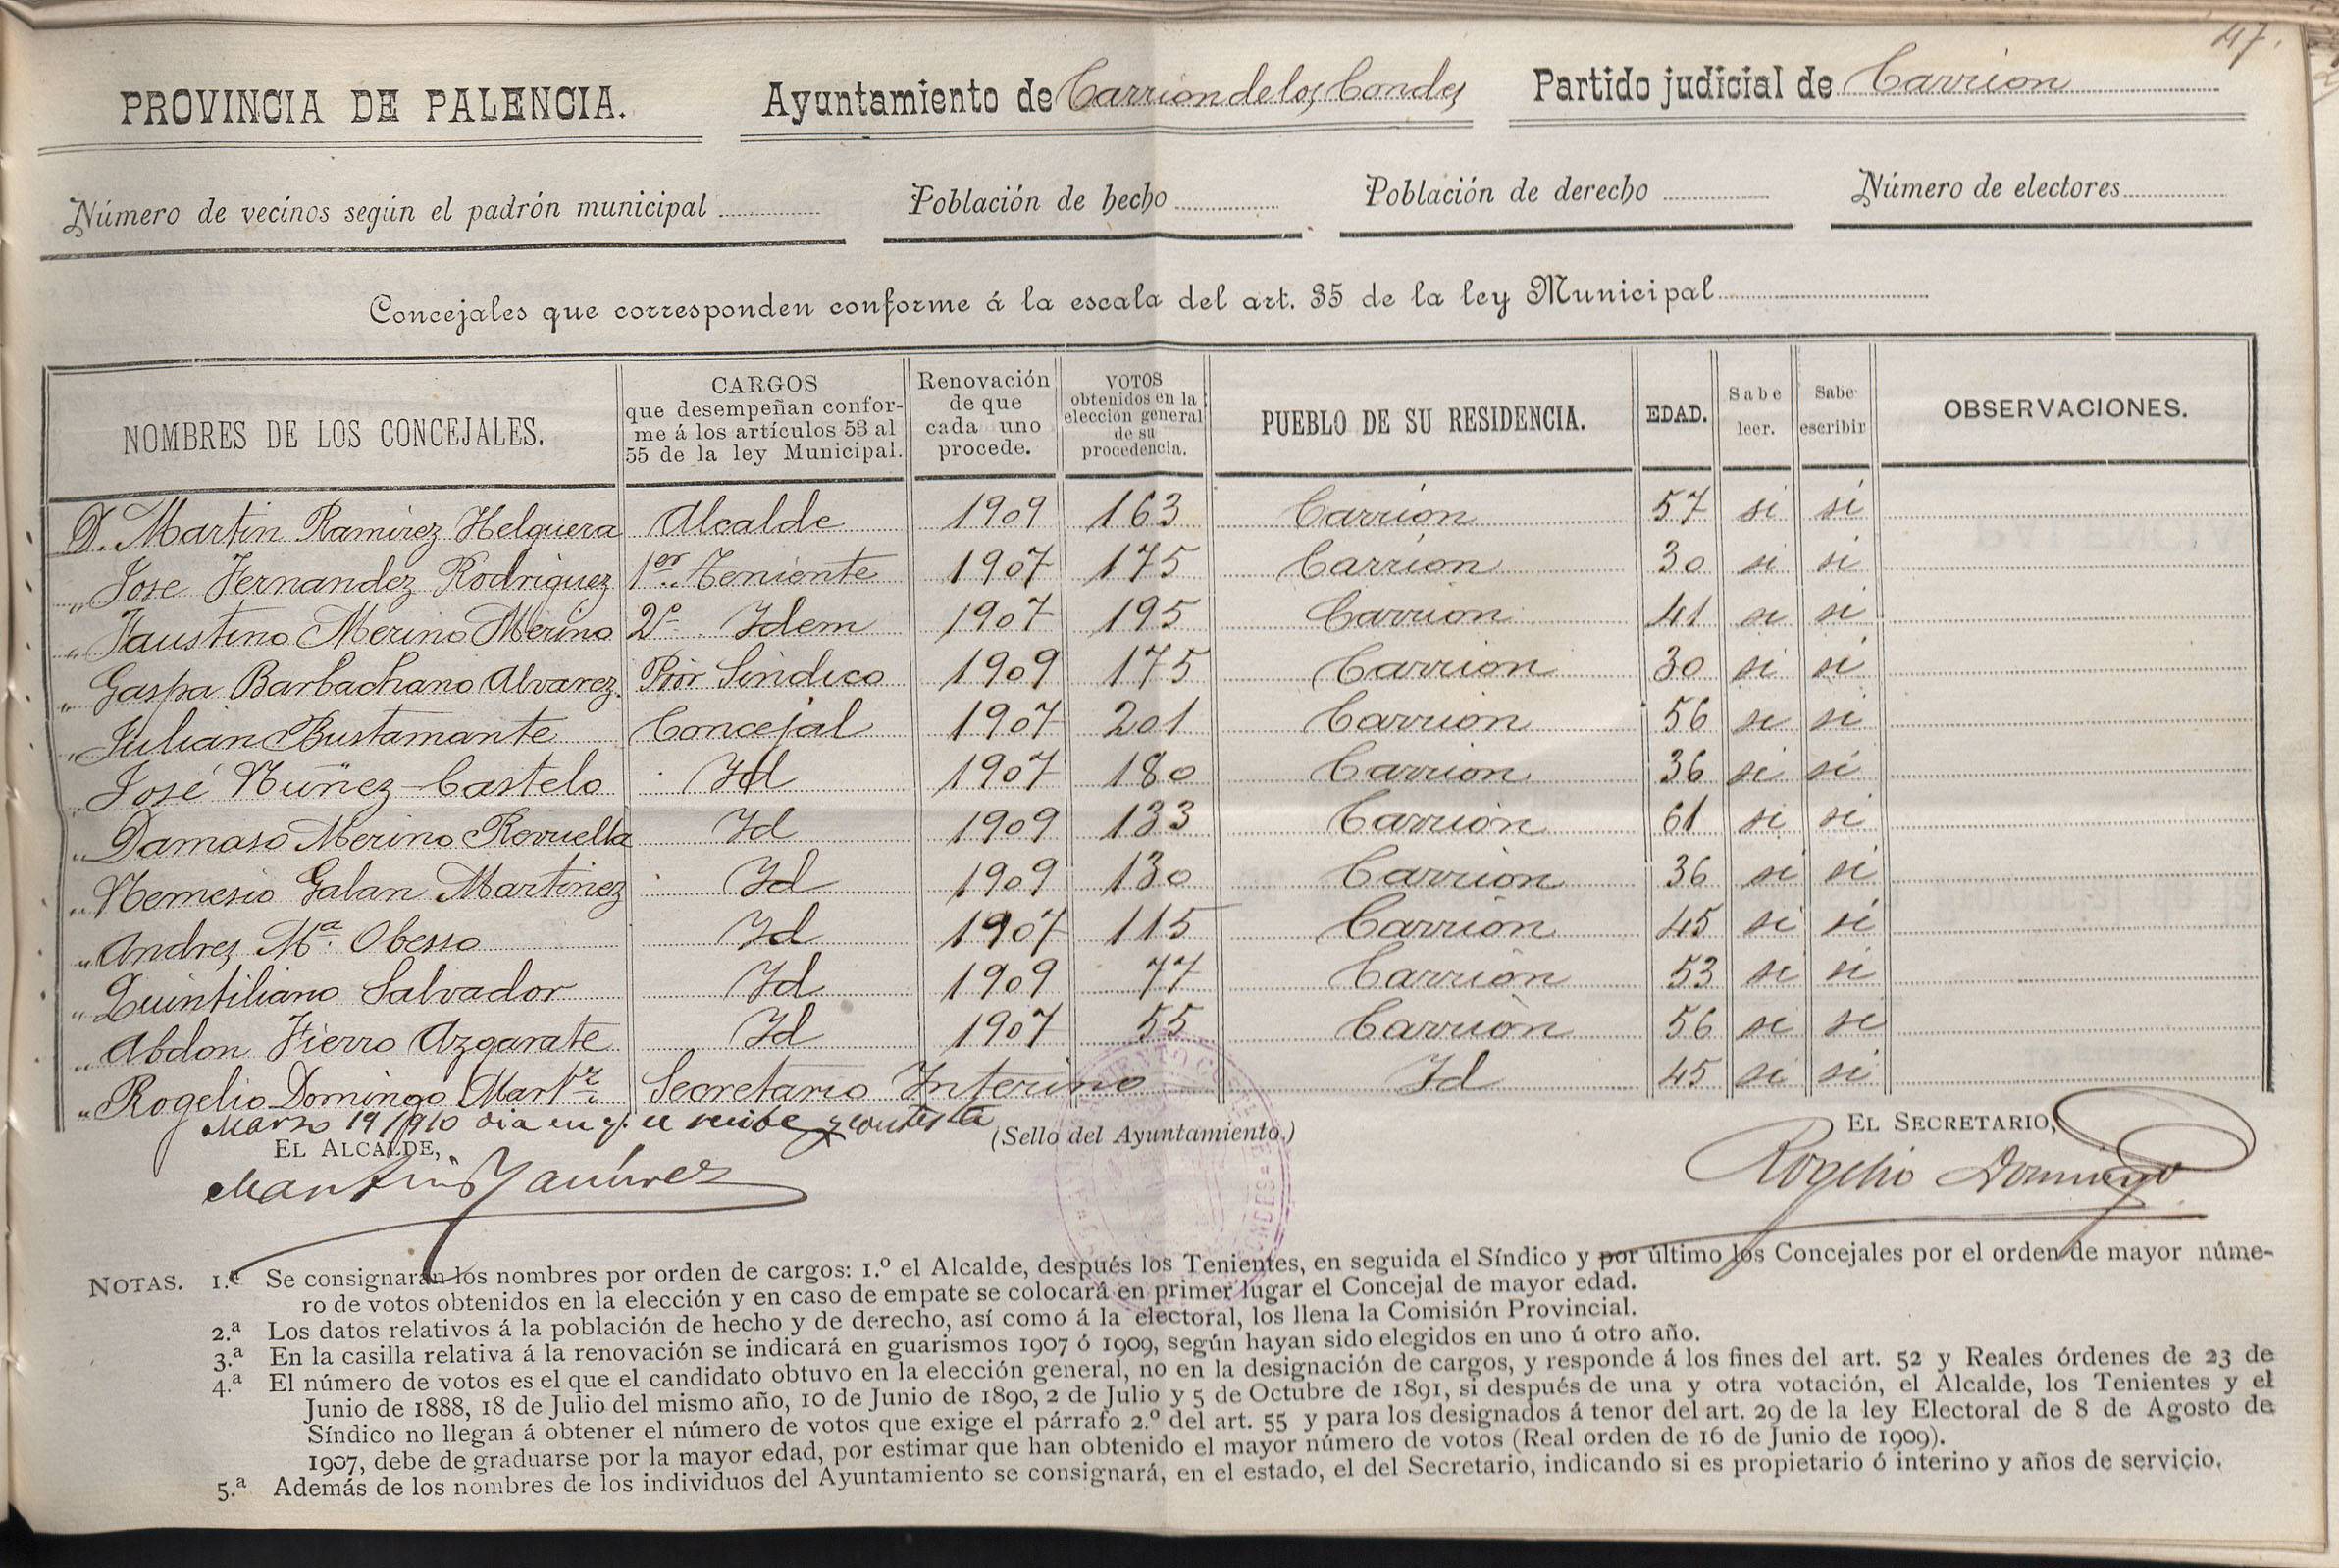 47.
PROVINCIA DE PALENCIA. Ayuntamiento de Carrion de los Condes Partido judicial de Carrion
Número de vecinos según el padrón municipal Población de hecho Población de derecho Número de electores
Concejales que corresponden conforme á la escala del art. 35 de la ley Municipal
NOMBRES DE LOS CONCEJALES. CARGOS que desempeñan confor-me á los artículos 53 al 55 de la ley Municipal. Renovación de que cada uno procede. VOTOS obtenidos en la elección general de su procedencia. PUEBLO DE SU RESIDENCIA. EDAD. Sabe leer. Sabe escribir OBSERVACIONES.
D. Martin Ramirez Helguera Alcalde 1909 163 Carrion 57 si si
" Jose Fernandez Rodriguez 1er Teniente 1907 175 Carrion 30 si si
" Faustino Merino Merino 2º Idem 1907 195 Carrion 41 si si
" Gaspa Barbachano Alvarez Pror Sindico 1909 175 Carrion 30 si si
" Julian Bustamante Concejal 1907 201 Carrion 56 si si
" José Nuñez Castelo Id 1907 180 Carrion 36 si si
" Damaso Merino Revuelta Id 1909 133 Carrion 61 si si
" Nemesio Galan Martinez Id 1909 130 Carrion 36 si si
" Andres Mª Obesso Id 1907 115 Carrion 45 si si
" Quintiliano Salvador Id 1909 77 Carrion 53 si si
" Abdon Fierro Azgarate Id 1907 55 Carrion 56 si si
" Rogelio Domingo Martz. Secretario Interino Id 45 si si
Marzo 19/910 dia en q. se recibe y contesta
EL ALCALDE, (Sello del Ayuntamiento.) EL SECRETARIO,
Martin Ramirez Rogelio Domingo
NOTAS. 1.ª Se consignarán los nombres por orden de cargos: 1.º el Alcalde, después los Tenientes, en seguida el Síndico y por último los Concejales por el orden de mayor núme-
ro de votos obtenidos en la elección y en caso de empate se colocará en primer lugar el Concejal de mayor edad.
2.ª Los datos relativos á la población de hecho y de derecho, así como á la electoral, los llena la Comisión Provincial.
3.ª En la casilla relativa á la renovación se indicará en guarismos 1907 ó 1909, según hayan sido elegidos en uno ú otro año.
4.ª El número de votos es el que el candidato obtuvo en la elección general, no en la designación de cargos, y responde á los fines del art. 52 y Reales órdenes de 23 de
Junio de 1888, 18 de Julio del mismo año, 10 de Junio de 1890, 2 de Julio y 5 de Octubre de 1891, si después de una y otra votación, el Alcalde, los Tenientes y el
Síndico no llegan á obtener el número de votos que exige el párrafo 2.º del art. 55 y para los designados á tenor del art. 29 de la ley Electoral de 8 de Agosto de
1907, debe de graduarse por la mayor edad, por estimar que han obtenido el mayor número de votos (Real orden de 16 de Junio de 1909).
5.ª Además de los nombres de los individuos del Ayuntamiento se consignará, en el estado, el del Secretario, indicando si es propietario ó interino y años de servicio.